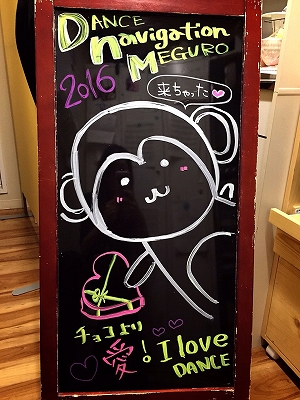 DANCE
Navigation
MEGURO
2016
来ちゃった♥
チョコより
愛！I love
DANCE